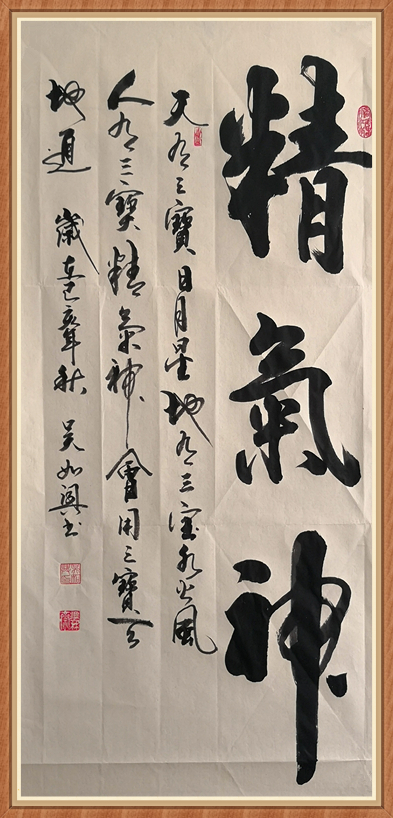 精氣神
天有三寶日月星地有三寶水火風
人有三寶精氣神會用三寶天
地通 歲在己亥年秋 吳如興书